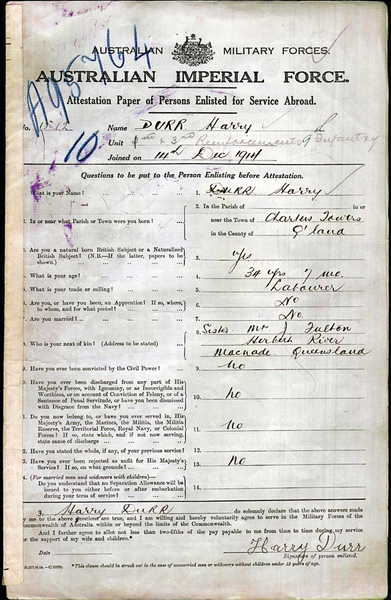 A95764
AUSTRALIAN MILITARY FORCES.
AUSTRALIAN IMPERIAL FORCE.
Attestation Paper of Persons Enlisted for Service Abroad.
No. Name DURR Harry
10 Unit 3rd Reinforcements 9th Infantry
Joined on 14th Dec 1914
Questions to be put to the Person Enlisting before Attestation.
1. What is your Name? 1. DURR Harry
2. In or near what Parish or Town were you born? 2. In the Parish of in or
near the Town of Charters Towers
in the County of Q'land
3. Are you a natural born British Subject or a Naturalised
British Subject? (N.B.—If the latter, papers to be
shown.) 3. yes
4. What is your age? 4. 34 yrs 7 mo.
5. What is your trade or calling? 5. Labourer
6. Are you, or have you been, an Apprentice? If so, where,
to whom, and for what period? 6. No
7. Are you married? 7. No
8. Who is your next of kin? (Address to be stated) 8. Sister Mrs J Fulton
Herbert River
Macnade Queensland
9. Have you ever been convicted by the Civil Power? 9. no
10. Have you ever been discharged from any part of His
Majesty's Forces, with Ignominy, or as Incorrigible and
Worthless, or on account of Conviction of Felony, or of a
Sentence of Penal Servitude, or have you been dismissed
with Disgrace from the Navy? 10. no
11. Do you now belong to, or have you ever served in, His
Majesty's Army, the Marines, the Militia, the Militia
Reserve, the Territorial Force, Royal Navy, or Colonial
Forces? If so, state which, and if not now serving,
state cause of discharge 11. no
12. Have you stated the whole, if any, of your previous service? 12.
13. Have you ever been rejected as unfit for His Majesty's
Service? If so, on what grounds? 13. no
14. (For married men and widowers with children)—
Do you understand that no Separation Allowance will be
issued to you either before or after embarkation
during your term of service? 14.
3. Harry DURR do solemnly declare that the above answers made
by me to the above questions are true, and I am willing and hereby voluntarily agree to serve in the Military Forces of the
Commonwealth of Australia within or beyond the limits of the Commonwealth.
And I further agree to allot not less than two-fifths of the pay payable to me from time to time during my service
for the support of my wife and children.*
Date Harry Durr
Signature of person enlisted.
*This clause should be struck out in the case of unmarried men or widowers without children under 18 years of age.